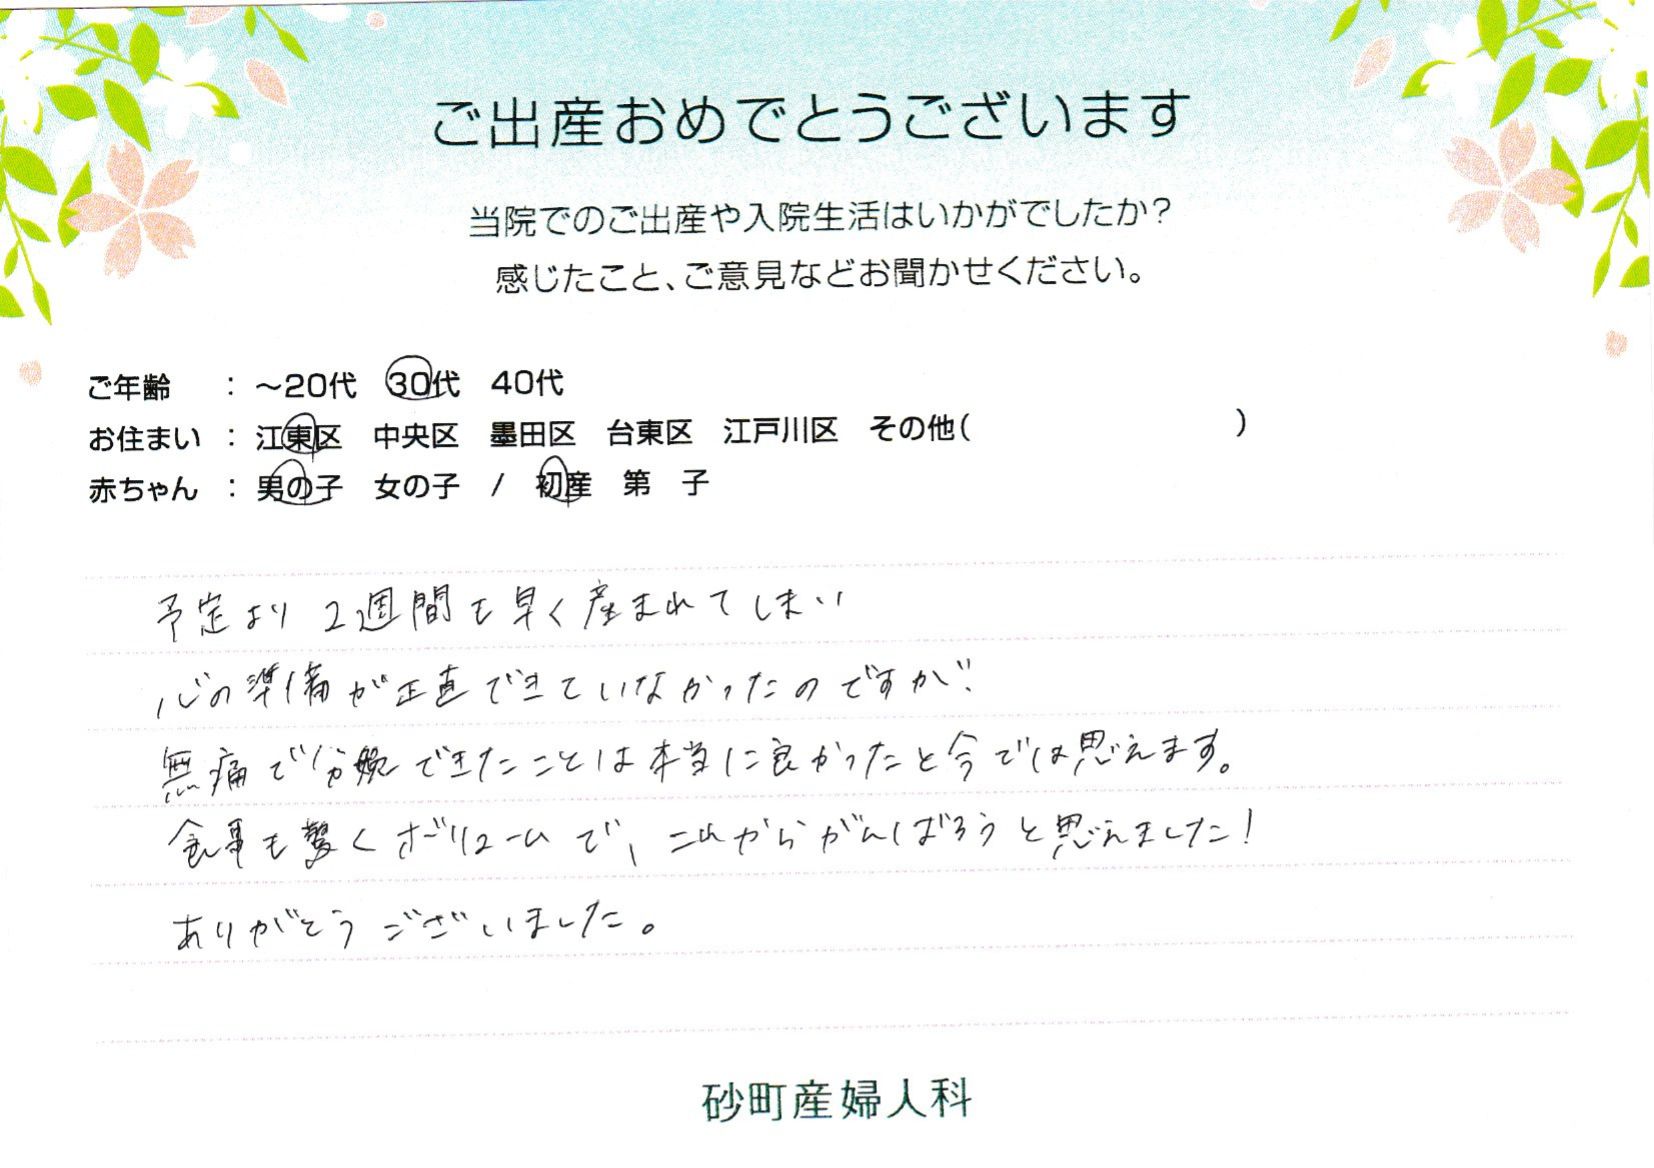 ご出産おめでとうございます
当院でのご出産や入院生活はいかがでしたか?
感じたこと、ご意見などお聞かせください。
ご年齢 : ～20代 30代 40代
お住まい : 江東区 中央区 墨田区 台東区 江戸川区 その他( )
赤ちゃん : 男の子 女の子 / 初産 第 子
予定より2週間も早く産まれてしまい
心の準備が正直できていなかったのですが
無痛で分娩できたことは本当に良かったと今では思えます。
食事も驚くボリュームで、これからがんばろうと思えました!
ありがとうございました。
砂町産婦人科